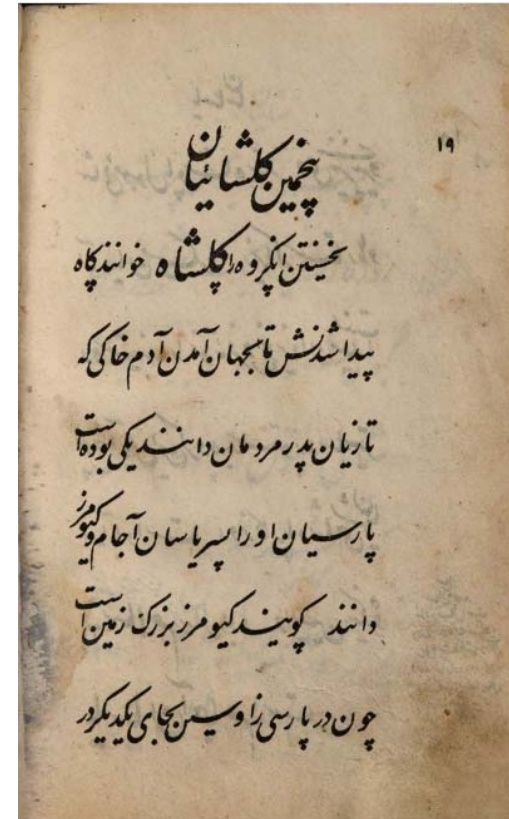 ۱۹
پنجمین کلشائیان
نخستن اینکروه را کلشاه خوانند کاه
پیدا شدنش تا بجهان آمدن آدم خاکی که
تازیان پدر مردمان دانند یکی بوده است
پارسیان او را پسر یاسان آجام و کیومرز
دانند کویند کیومرز بزرک زمین است
چون در پارسی زا و سین بجای یکدیکر در